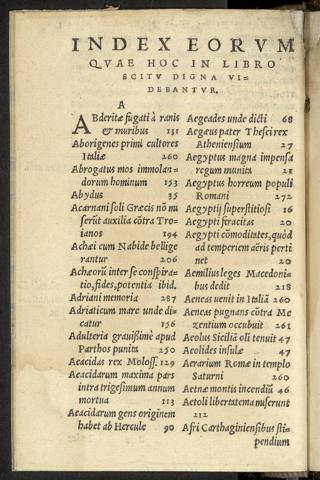 INDEX EORVM
QVAE HOC IN LIBRO
SCITV DIGNA VI=
DEBANTVR.
A
ABderitæ fugati à ranis
& muribus 131
Aborigenes primi cultores
Italiæ 260
Abrogatus mos immolan=
dorum hominum 153
Abydus 35
Acarnani soli Græcis nō mi
serūt auxilia cōtra Tro=
ianos 194
Achæi cum Nabide bellige
rantur 206
Achæorū inter se conspira=
tio, fides, potentia ibid.
Adriani memoria 287
Adriaticum mare unde di=
catur 156
Adulteria grauißimè apud
Parthos punita 250
Aeacidas rex Moloss. 129
Aeacidarum maxima pars
intra trigesimum annum
mortua 113
Aeacidarum gens originem
habet ab Hercule 90
Aegeades unde dicti 68
Aegæus pater Thesei rex
Atheniensium 27
Aegyptus magna impensa
regum munita 21
Aegyptus horreum populi
Romani 272
Aegyptij superstitiosi 16
Aegypti feracitas 20
Aegypti cōmoditates, quòd
ad temperiem aëris perti
net 20
Aemilius leges Macedoni=
bus dedit 218
Aeneas uenit in Italiā 260
Aeneas pugnans cōtra Me
zentium occubuit 261
Aeolus Siciliā oli tenuit 47
Aeolides insulæ 47
Aerarium Romæ in templo
Saturni 260
Aetnæ montis incendiū 46
Aetoli libertatem amiserunt
212
Afri Carthaginiensibus sti=
pendium